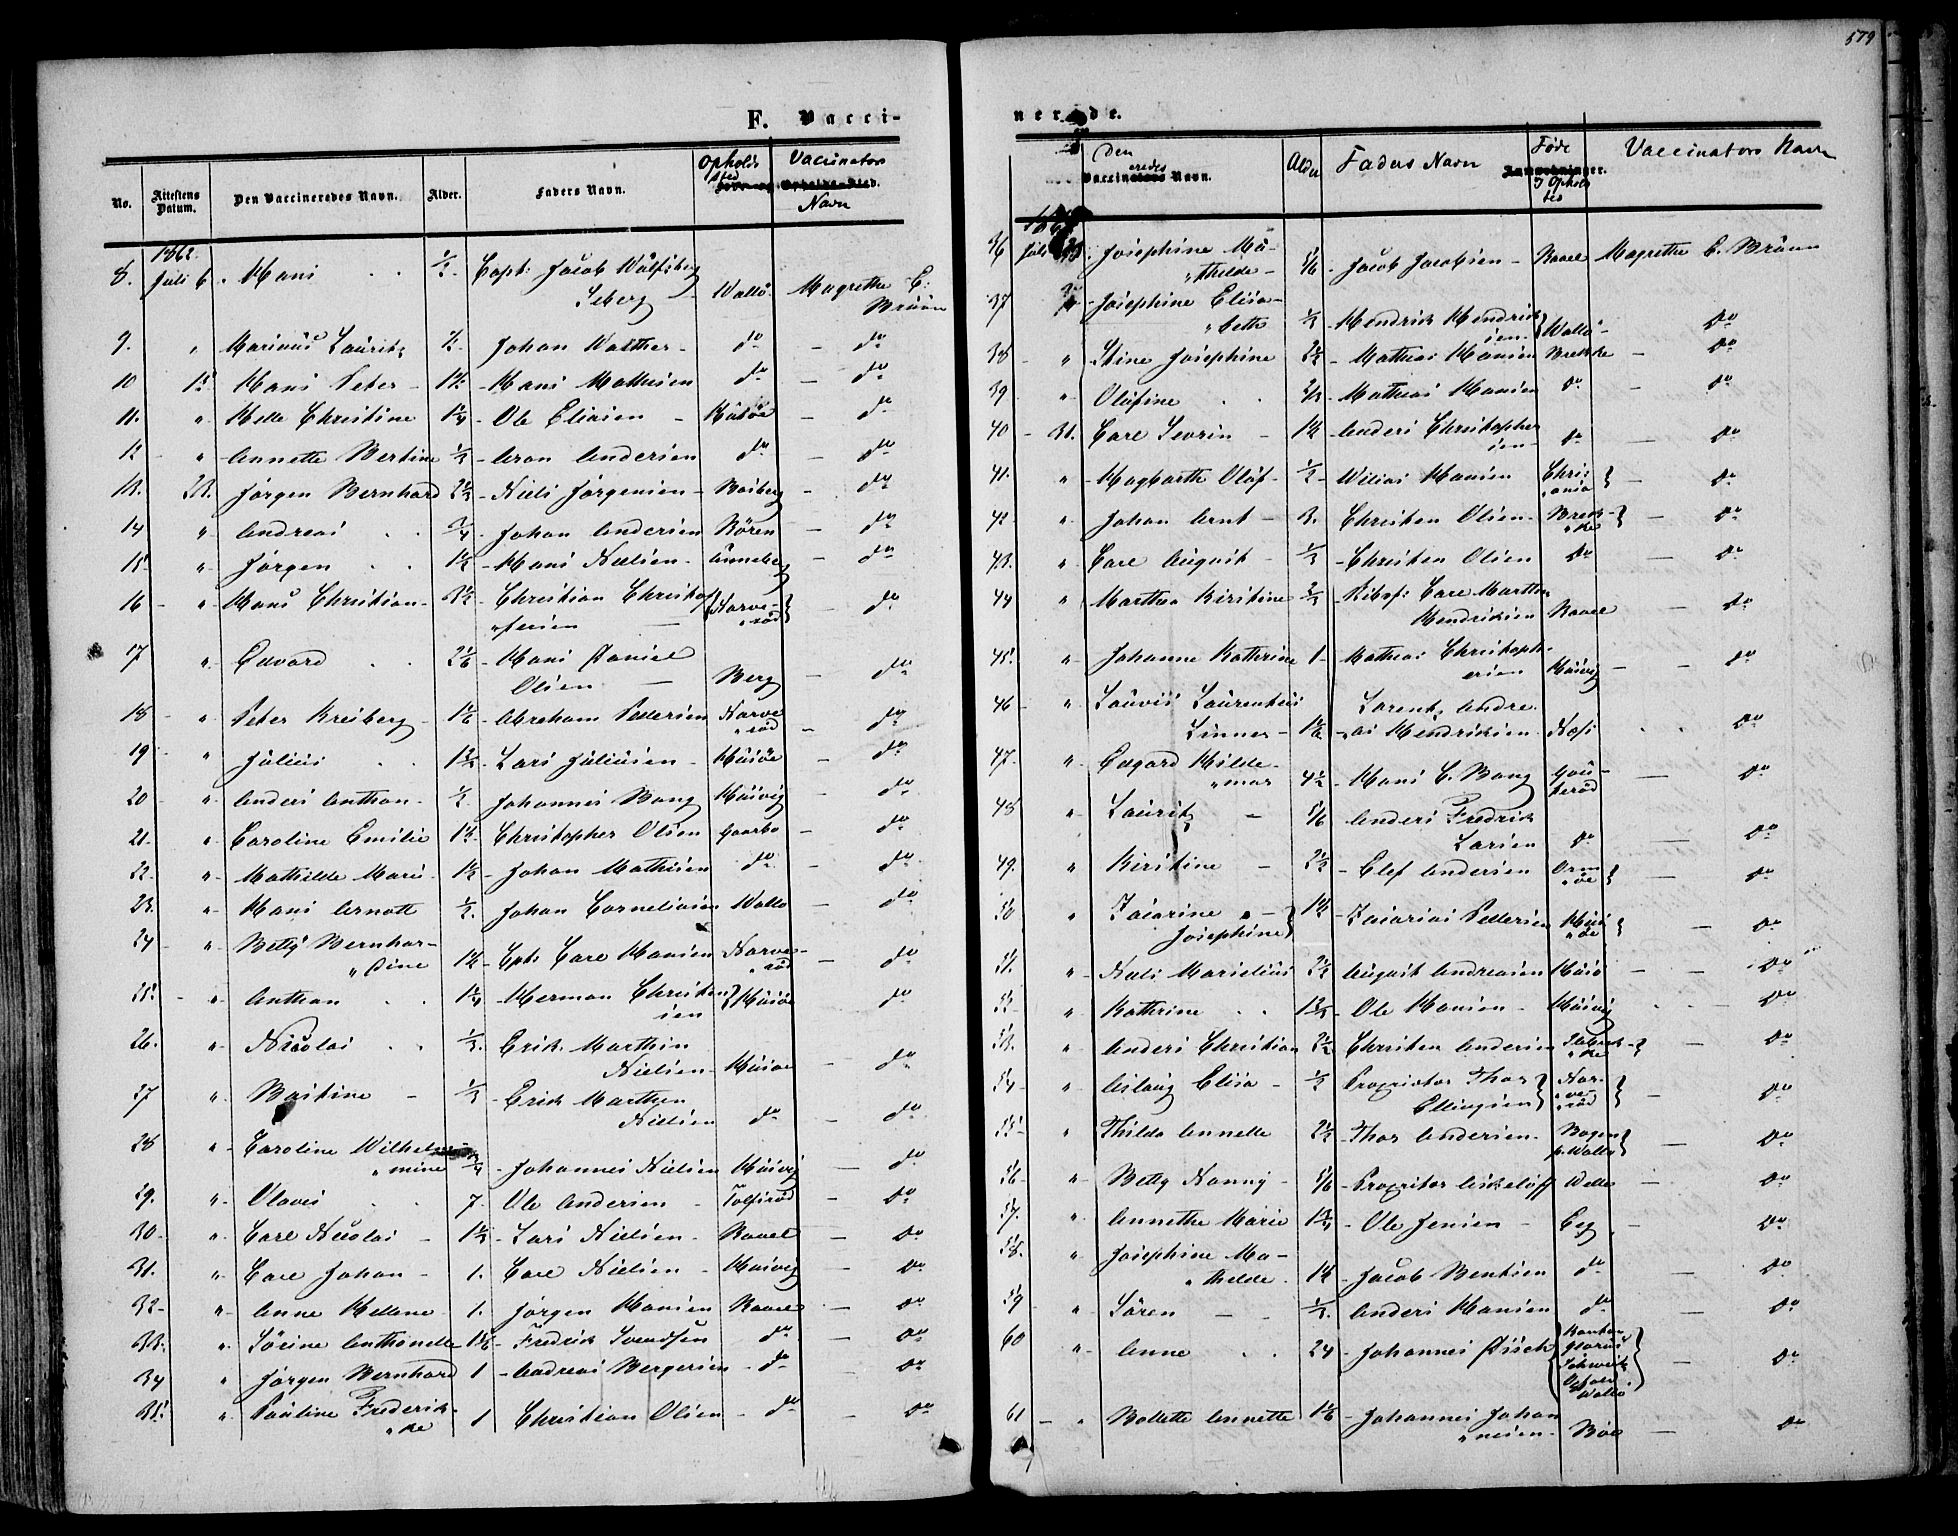 579
F. Vacci-
No. Attestens Datum. Den Vaccineredes Navn. Alder. Faders Navn. Opholds sted Vaccinators Navn
1862.
8. Juli 6. Hans ½ Capt: Jacob Wulfsberg
Seberg Vallö Magrethe C: Bruun
9. " Marinus Lauritz ½ Johan Walther do do
10 15 Hans Peter 1½ Hans Mathisen do do
11. " Helle Christine 1¼ Ole Eliasen Husöe do
12 " Annette Bertine ½ Aron Andersen do do
13. 23. Jörgen Bernhard 2½ Niels Jörgensen Basberg do
14 " Andreas ¾ Johan Andersen Rören do
15 " Jörgen 1½ Hans Nielsen Unneberg do
16 " Hans Christian 3½ Christian Christof
fersen Narve
röd do
17 " Edvard 2⅙ Hans Daniel
Olsen Berg do
18 " Peter Kreiberg 1⅙ Abraham Pettersen Narve
röd do
19 " Julius 1½ Lars Juliusen Husöe do
20 " Anders Anthon ½ Johannes Bang Husvig do
21. " Caroline Emilie 1½ Christopher Olsen Gaarbo do
22. " Mathilde Marie 1½ Johan Mathisen do do
23. " Hans Arnott ½ Johan Corneliasen Vallö do
24 " Betty Bernhar-
dine 1½ Cpt: Carl Hansen Narve-
röd do
25. " Anthon 1¼ Herman Christen
sen Husöe do
26. " Nicolai ⅓ Erik Marthin
Nielsen Husöe do
27 " Bastine ⅓ Erik Marthin
Nielsen do do
28 " Caroline Wilhel
mine ¾ Johannes Nielsen Husvig do
29. " Olavis 7. Ole Andersen Tolfsröd do
30. " Carl Nicolai 1½ Lars Nielsen Ravel do
31. " Carl Johan 1. Carl Nielsen Husvig do
32 " Anne Helene 1. Jörgen Hansen Ravel do
33. " Sörine Anthonette 1⅙ Fredrik Svendsen do do
34 " Jörgen Bernhard 1 Andreas Bergersen do do
35 " Pauline Frederik-
ke 1 Christian Olsen do do
nerede.
Den Vaccineredes Navn. Alder Faders Navn Föde & Opholds sted Vaccinators Navn
36 Juli Josephine Ma-
thilde 5/6 Jacob Jacobsen Ravel Magrethe C. Bruun
37 " Josephine Elisa-
beth ½ Hendrik Hendrik
sen Vallö do
38 " Stine Josephine 2½ Mathias Hansen Brekke do
39 " Olafine ⅔ Mathias Hansen do do
40 31. Carl Sevrin 1½ Anders Christopher
sen do do
41. " Magbarth Olaf ½ Wilias Hansen Chris
ania do
42 " Johan Arnt 3. Christen Olsen Brek-
ke do
43. " Carl August ⅓ Christen Olsen do do
44 " Marthea Kirstine ⅔ Skibsf: Carl Marthin
Hendriksen Ravel do
45. " Johanne Kathrine 1 Mathias Christoph-
ersen Husvig do
46 " Lauvis Laurentius
Linner 1⅙ Lorentz Andre
as Hendriksen Næs do
47. " Edgard Hilde
mar 4½ Hans C. Bang Gou-
keröd do
48 " Lauritz 5/6 Anders Fredrik
Larsen do do
49. " Kirstine 2½ Elef Andersen Orm
öe do
50 " Zaiarine
Josephine 1½ Zaiarias Pettersen Hus
öe do
51. " Niels Marielius 2½ August Andreasen Husö do
52 " Kathrine 1⅔ Ole Hansen Husvig do
53. " Anders Christian 2½ Christen Andersen do
54 " Aslaug Elisa ⅓ Proprietor Thor
Ellingsen Nar-
ve
röd do
55 " Thilda Annette 2½ Thor Andersen Bogen
p. Vallö do
56 " Betty Nanny 5/6 Propritor Askeloff Velle do
57. " Annethe Marie 1¾ Ole Jensen Eeg do
58. " Josephine Ma-
thilde 1½ Jacob Bentsen do do
59 " Sören ⅓ Anders Hansen do do
60 " Anne 24 Johannes Disch Kanton
Glarus
Schweitz
Ophold
Vallö do
61 " Bollette Annette 1⅙ Johannes Johan
nesen Böe do